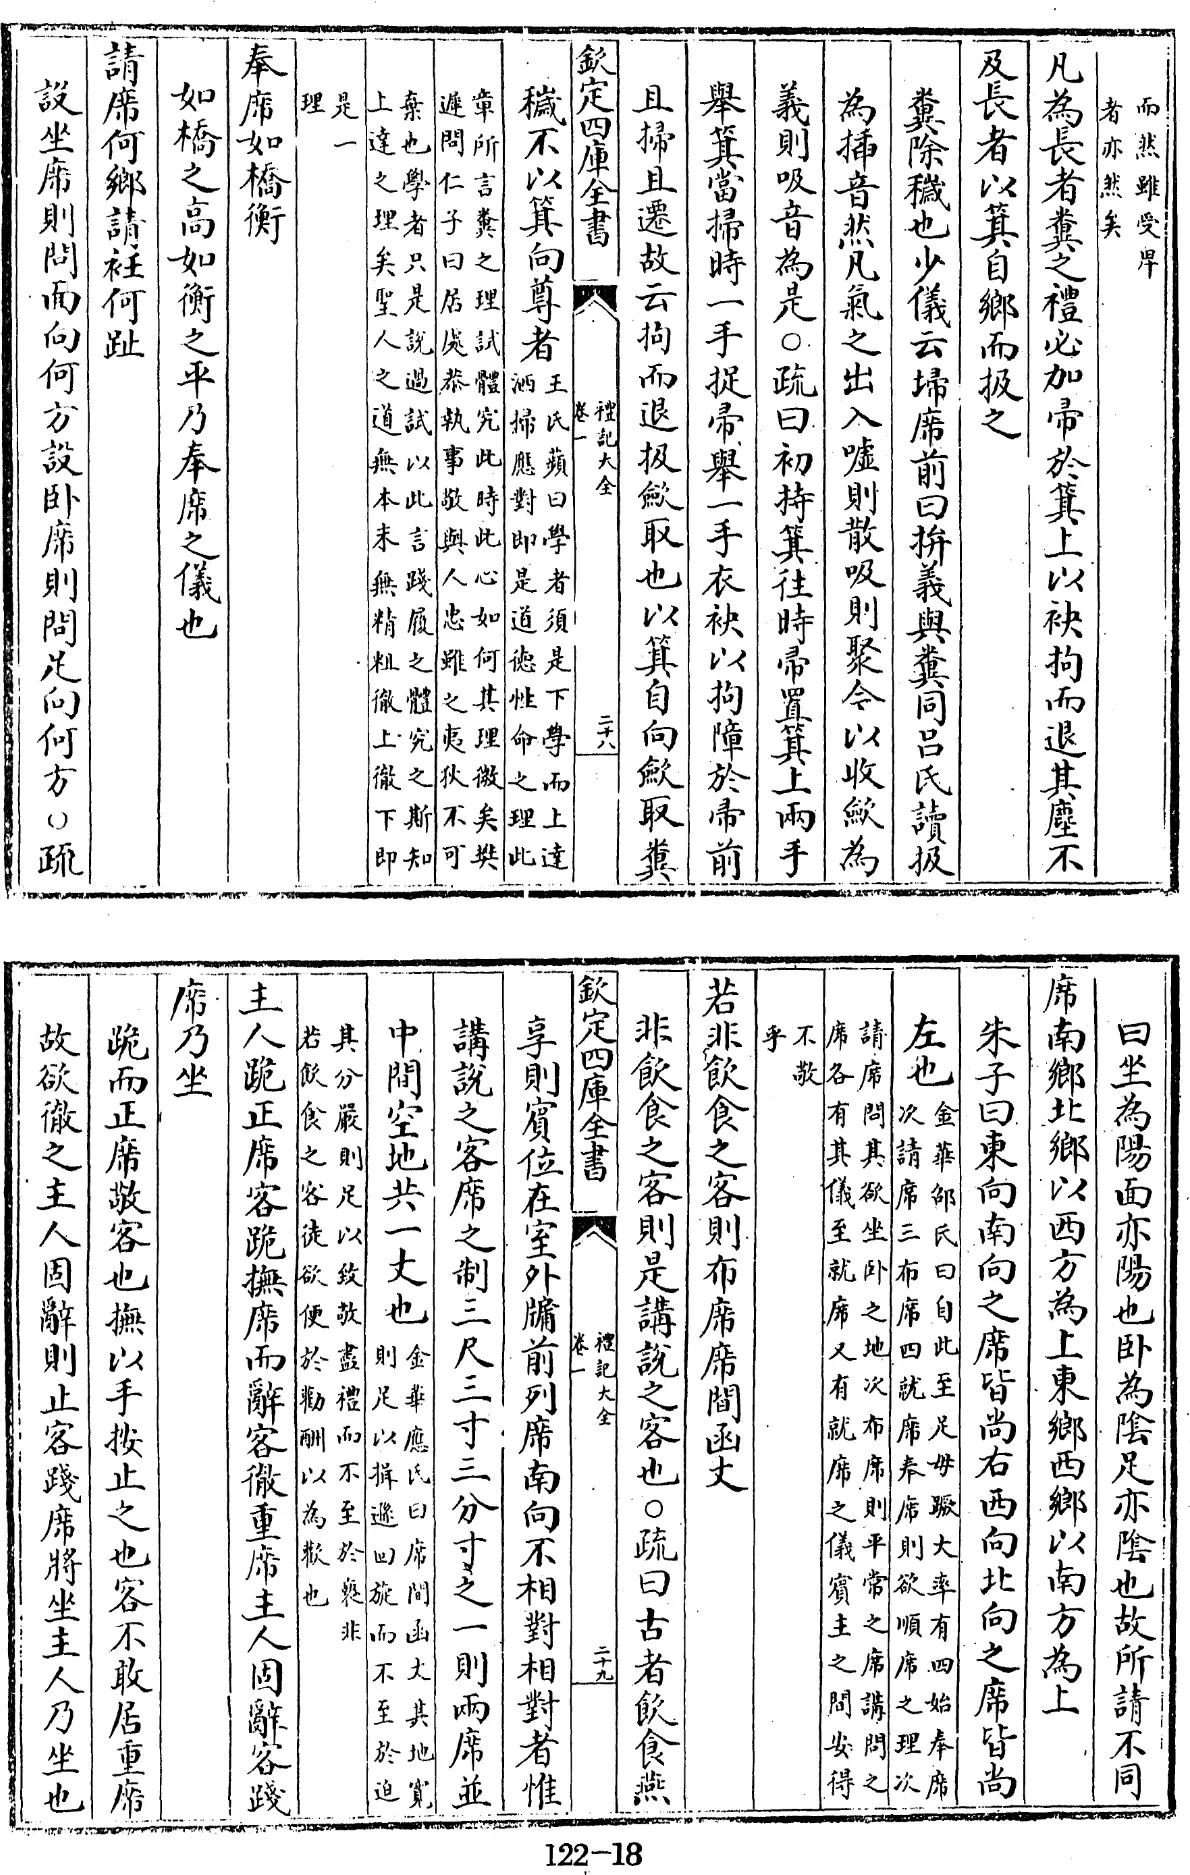 而然雖受畀
者亦然矣
凡為長者糞之禮必加帚於箕上以袂拘而退其塵不
及長者以箕自鄉而扱之
糞除穢也少儀云埽席前曰拚義與糞同吕氏讀扱
為插音然凡氣之出入噓則散吸則聚今以收斂為
義則吸音為是○疏曰初持箕往時帚置箕上兩手
舉箕當掃時一手捉帚舉一手衣袂以拘障於帚前
且掃且遷故云拘而退扱斂取也以箕自向斂取糞
欽定四庫全書
禮記大全
卷一
二十八
穢不以箕向尊者
王氏蘋曰學者須是下學而上達
洒掃應對即是道德性命之理此
章所言糞之理試體究此時此心如何其理微矣樊
遲問仁子曰居處恭執事敬與人忠雖之夷狄不可
棄也學者只是說過試以此言踐履之體究之斯知
上達之理矣聖人之道無本末無精粗徹上徹下即
是一
理
奉席如橋衡
如橋之高如衡之平乃奉席之儀也
請席何鄉請衽何趾
設坐席則問面向何方設卧席則問足向何方○疏
曰坐為陽面亦陽也卧為陰足亦陰也故所請不同
席南鄉北鄉以西方為上東鄉西鄉以南方為上
朱子曰東向南向之席皆尚右西向北向之席皆尚
左也
金華邵氏曰自此至足毋蹶大率有四始奉席
次請席三布席四就席奉席則欲順席之理次
請席問其欲坐卧之地次布席則平常之席講問之
席各有其儀至就席又有就席之儀賓主之間安得
不敬
乎
若非飲食之客則布席席間函丈
非飲食之客則是講說之客也○疏曰古者飲食燕
欽定四庫全書
禮記大全
卷一
二十九
享則賓位在室外牖前列席南向不相對相對者惟
講說之客席之制三尺三寸三分寸之一則兩席並
中間空地共一丈也
金華應氏曰席間函丈其地寬
則足以揖遜回旋而不至於迫
其分嚴則足以致敬盡禮而不至於䙝非
若飲食之客徒欲便於勸酬以為歡也
主人跪正席客跪撫席而辭客徹重席主人固辭客踐
席乃坐
跪而正席敬客也撫以手按止之也客不敢居重席
故欲徹之主人固辭則止客踐席將坐主人乃坐也
122-18